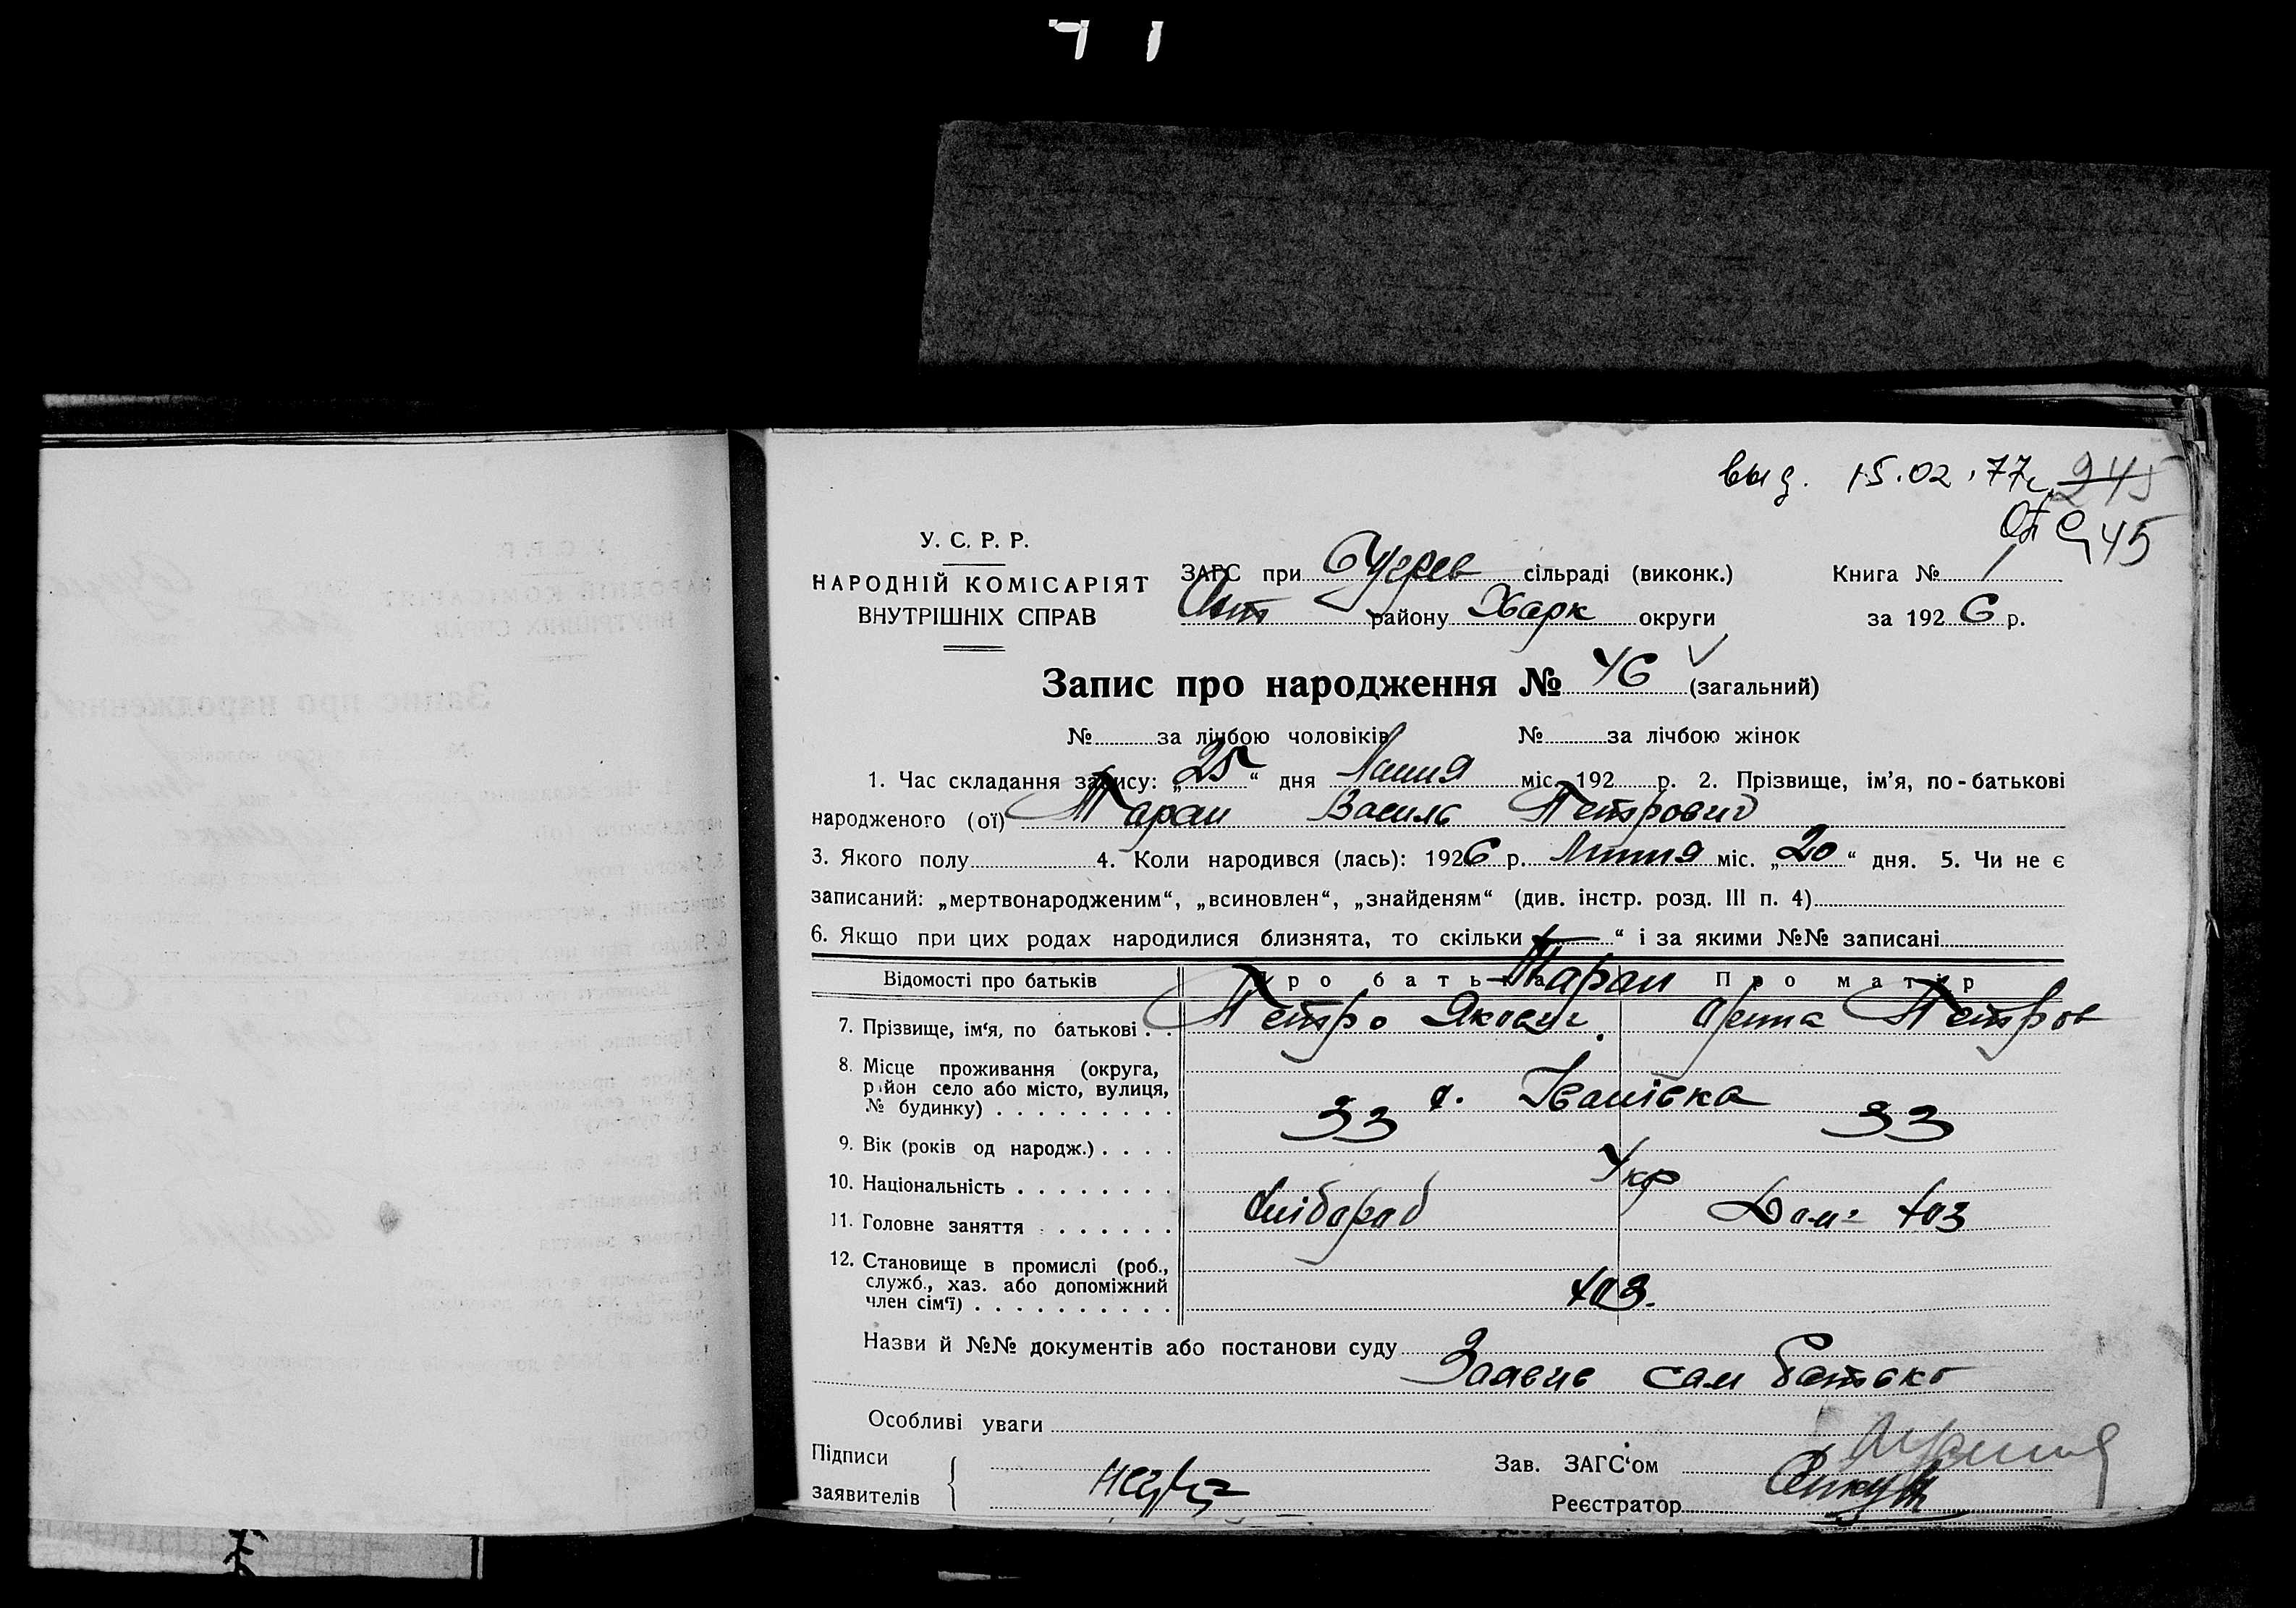 выд. 15.02.77г. 245
45
У. С. Р. Р.
НАРОДНІЙ КОМІСАРІЯТ
ВНУТРІШНІХ СПРАВ
ЗАГС при сільраді (виконк.)
району Харк округи
Книга № 1
за 1926 р.
Запис про народження № 46 (загальний)
№ за лічбою чоловіків № за лічбою жінок
1. Час складання запису: „25“ дня Липня міс. 192 р. 2. Прізвище, ім'я, по-батькові
народженого (ої) Таран Василь Петрович
3. Якого полу 4. Коли народився (лась): 1926 р. Липня міс. „20“ дня. 5. Чи не є
записаний: „мертвонародженим“, „всиновлен“, „знайденям“ (див. інстр. розд. III п. 4)
6. Якщо при цих родах народилися близнята, то скільки “ і за якими №№ записані
Відомості про батьків Про батька Про матір
Таран
7. Прізвище, ім'я, по батькові . . Петро Якович. Орина Петров
8. Місце проживання (округа,
район село або місто, вулиця,
№ будинку) . . . . . . . . . с. Іванівка
9. Вік (років од народж.) . . . . 33 33
10. Національність . . . . . . . . Укр
11. Головне заняття . . . . . . . Хлібороб Дом= хоз
12. Становище в промислі (роб.,
служб., хаз. або допоміжний
член сім'ї) . . . . . . . . . . хоз.
Назви й №№ документів або постанови суду
Заявив сам батько
Особливі уваги
Підписи
заявителів
Зав. ЗАГС'ом
Реєстратор